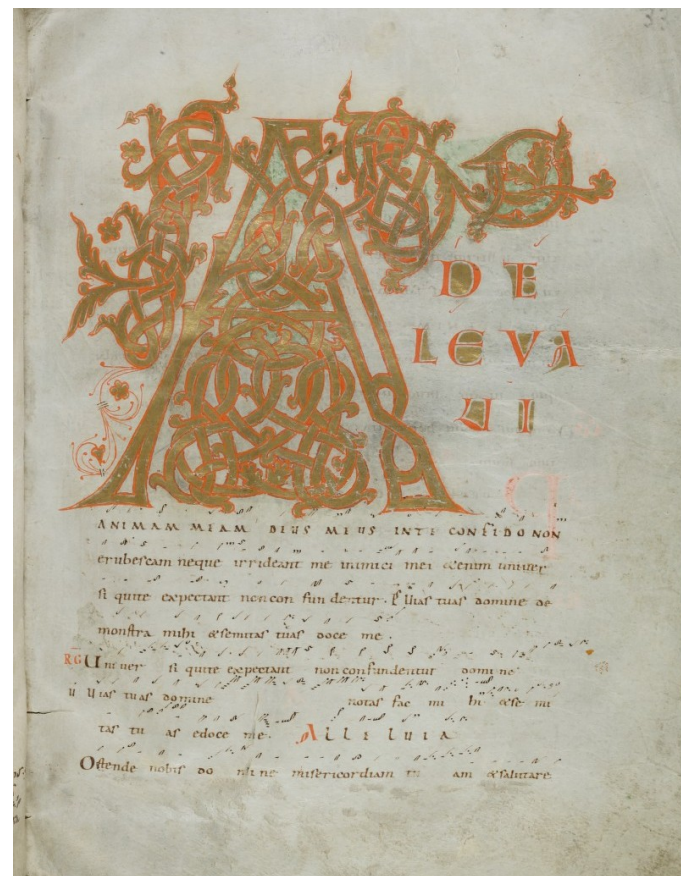 33
A D
DE
LEVA
UI
ANIMAM MEAM DEUS MEUS INTE CONFIDO NON
erubescam neque irrideant me inimici mei &enim univer
si quite expectant noncon fun dentur. Uias tuas domine de
monstra mihi &semitas tuas doce me.
RG Uniuer si quite expectant non confundentur domine
U Uias tuas domine notas fac mi hi &se mi
tas tu as edoce me. Alleluia
Ostende nobis do mi ne misericordiam tu am &salutare